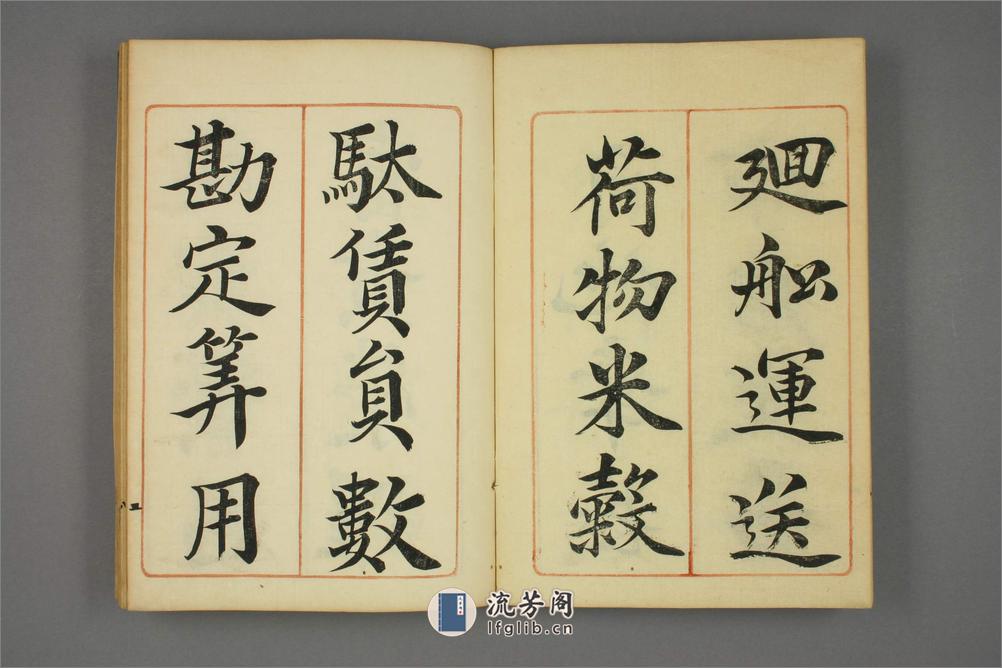 廻船運送
荷物米穀
駄賃員數
勘定筭用
五
流芳阁
lfglib.cn